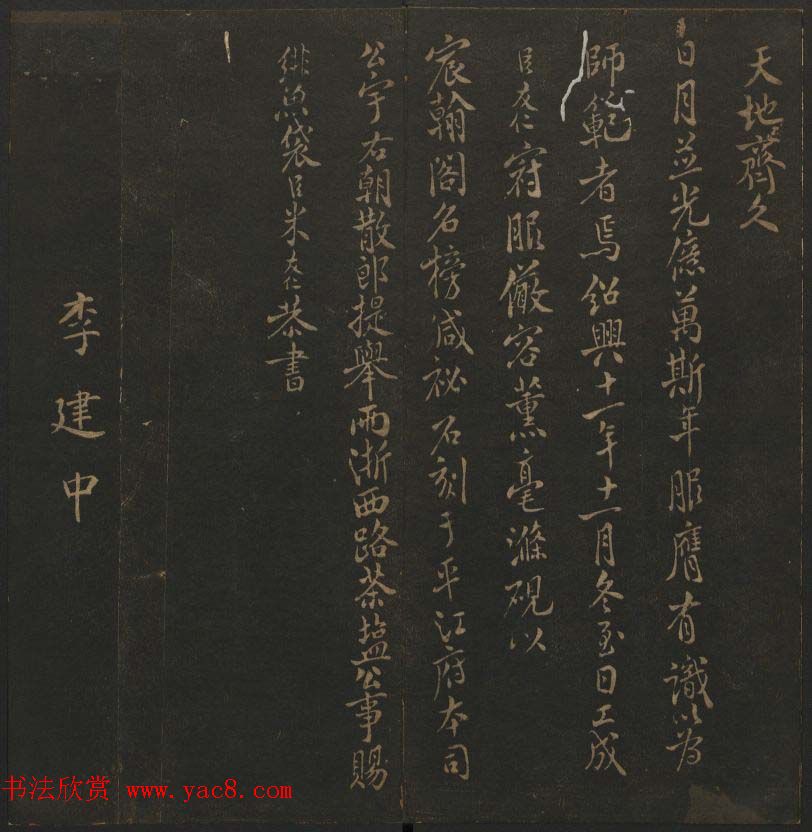 天地齊久
日月並光億萬斯年服膺有識以為
師範者焉紹興十一年十一月冬至日工成
臣友仁窃服儼容薰毫滌硯以
宸翰閣名榜咸祕石刻于平江府本司
公宇右朝散郎提舉兩浙西路茶塩公事賜
緋魚袋臣米友仁恭書
李建中
书法欣赏 www.yac8.com